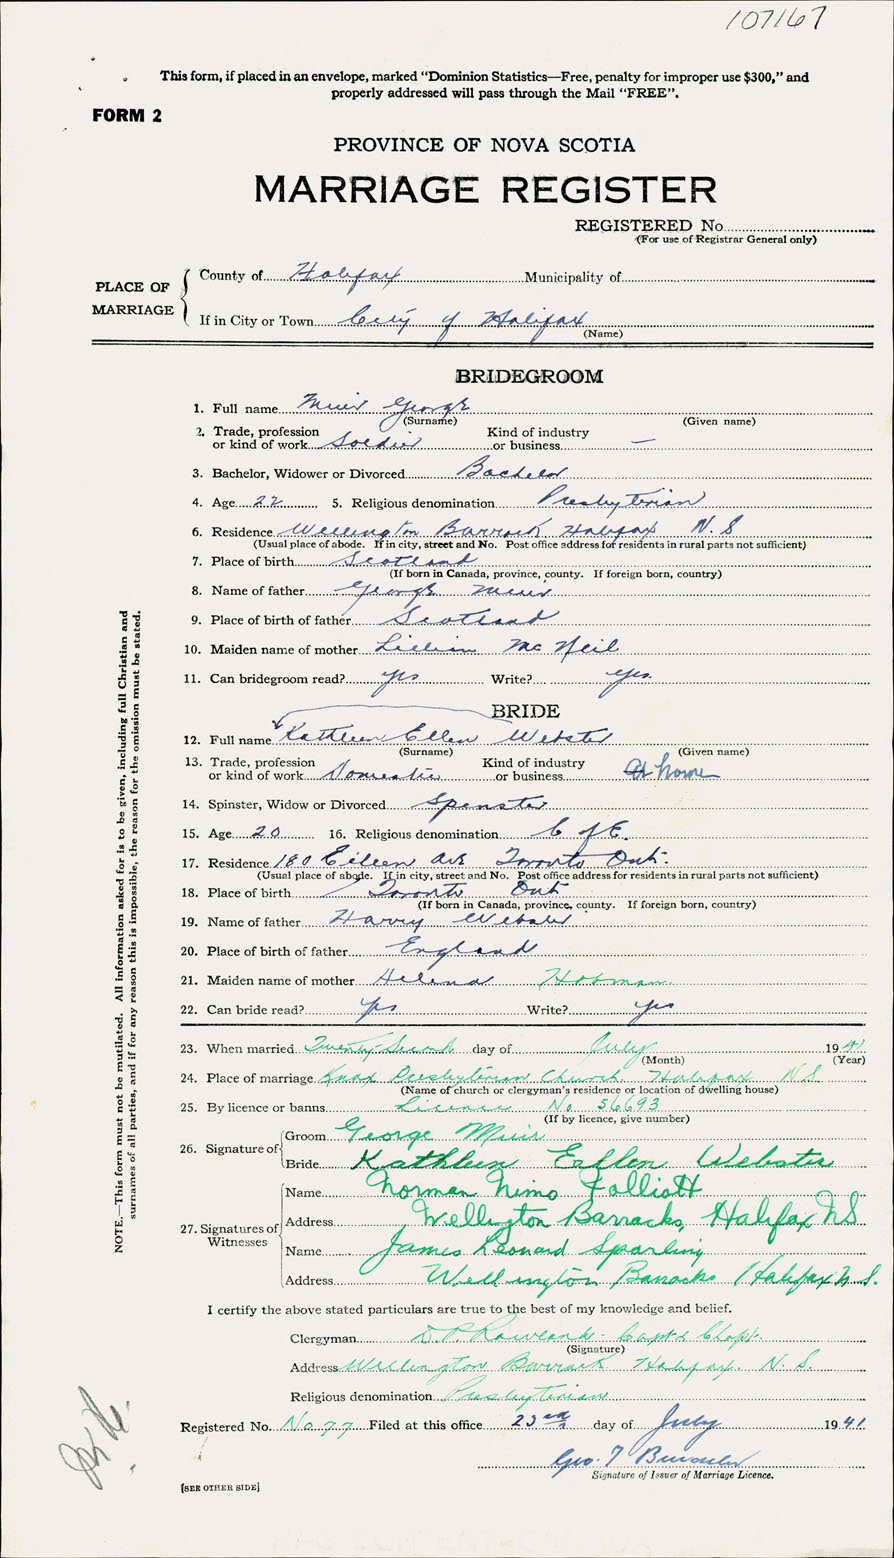 107167
This form, if placed in an envelope, marked “Dominion Statistics—Free, penalty for improper use $300,” and
properly addressed will pass through the Mail “FREE”.
FORM 2
PROVINCE OF NOVA SCOTIA
MARRIAGE REGISTER
REGISTERED No.
(For use of Registrar General only)
PLACE OF MARRIAGE
County of Halifax Municipality of
If in City or Town City of Halifax
(Name)
BRIDEGROOM
1. Full name Muir George
(Surname) (Given name)
2. Trade, profession or kind of work Soldier Kind of industry or business —
3. Bachelor, Widower or Divorced Bachelor
4. Age 22 5. Religious denomination Presbyterian
6. Residence Wellington Barrack Halifax N.S
(Usual place of abode. If in city, street and No. Post office address for residents in rural parts not sufficient)
7. Place of birth Scotland
(If born in Canada, province, county. If foreign born, country)
8. Name of father George Muir
9. Place of birth of father Scotland
10. Maiden name of mother Lillian McNeil
11. Can bridegroom read? yes Write? yes.
BRIDE
12. Full name Kathleen Ellen Webster
(Surname) (Given name)
13. Trade, profession or kind of work Domestic Kind of industry or business At home
14. Spinster, Widow or Divorced Spenster
15. Age 20 16. Religious denomination C of E.
17. Residence 180 Eileen Ave Toronto Ont.
(Usual place of abode. If in city, street and No. Post office address for residents in rural parts not sufficient)
18. Place of birth Toronto Ont
(If born in Canada, province, county. If foreign born, country)
19. Name of father Harry Webster
20. Place of birth of father England
21. Maiden name of mother Helena Hobman
22. Can bride read? yes Write? yes
23. When married Twenty-Second day of July 1941
(Month) (Year)
24. Place of marriage Knox Presbyterian Church Halifax N.S.
(Name of church or clergyman's residence or location of dwelling house)
25. By licence or banns Licence No 56693
(If by licence, give number)
26. Signature of
Groom George Muir
Bride Kathleen Ellen Webster
27. Signatures of Witnesses
Name Norman Nimo Falliott
Address Wellington Barracks, Halifax NS
Name James Leonard Sparling
Address Wellington Barracks Halifax N.S.
I certify the above stated particulars are true to the best of my knowledge and belief.
Clergyman D.P. Rowland - Capt &
(Signature)
Address Wellington Barrack Halifax. N.S.
Religious denomination Presbyterian
Registered No. No 77 Filed at this office 23rd day of July 1941
Geo. T
Signature of Issuer of Marriage Licence.
[SEE OTHER SIDE]
NOTE.—This form must not be mutilated. All information asked for is to be given, including full Christian and
surnames of all parties, and if for any reason this is impossible, the reason for the omission must be stated.